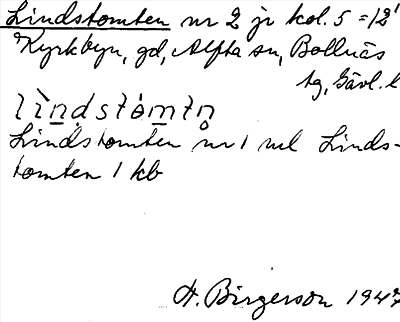 Lindstomten nr 2 jr kol. 5 = 12'
Kyrkbyn, gd, Alfta sn, Bollnäs
tg, Gävl. l
lìndstòmtn̥
Lindstomten nr 1 ml Linds-
tomten 1 kb
H. Birgerson 1947